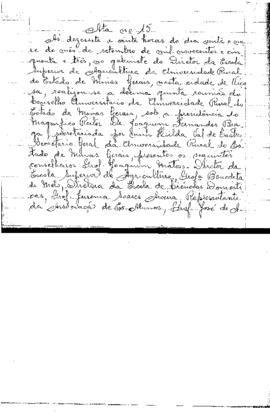 Ata nº 15.
Às dezessete e vinte horas do dia vinte e on-
ze do mês de setembro de mil novecentos e cin-
quenta e três, no gabinete do Diretor da Escola
Superior de Agricultura da Universidade Rural
do Estado de Minas Gerais, nesta cidade de Viço
sa, realizou-se a décima quinta reunião do
Conselho Universitário da Universidade Rural do
Estado de Minas Gerais, sob a presidência do
Magnífico Reitor Dr. Joaquim Fernandes Bra-
ga, secretariada por
Secretária Geral da Universidade Rural do Es-
tado de Minas Gerais, presentes os seguintes
conselheiros: Prof. Joaquim Matoso - Diretor da
Escola Superior de Agricultura, Profa Benedita
de Melo, Diretora da Escola de Ciências Domésti
cas, Prof. Soares Representante
da Associação de Ex-Alunos, Prof. José de A-